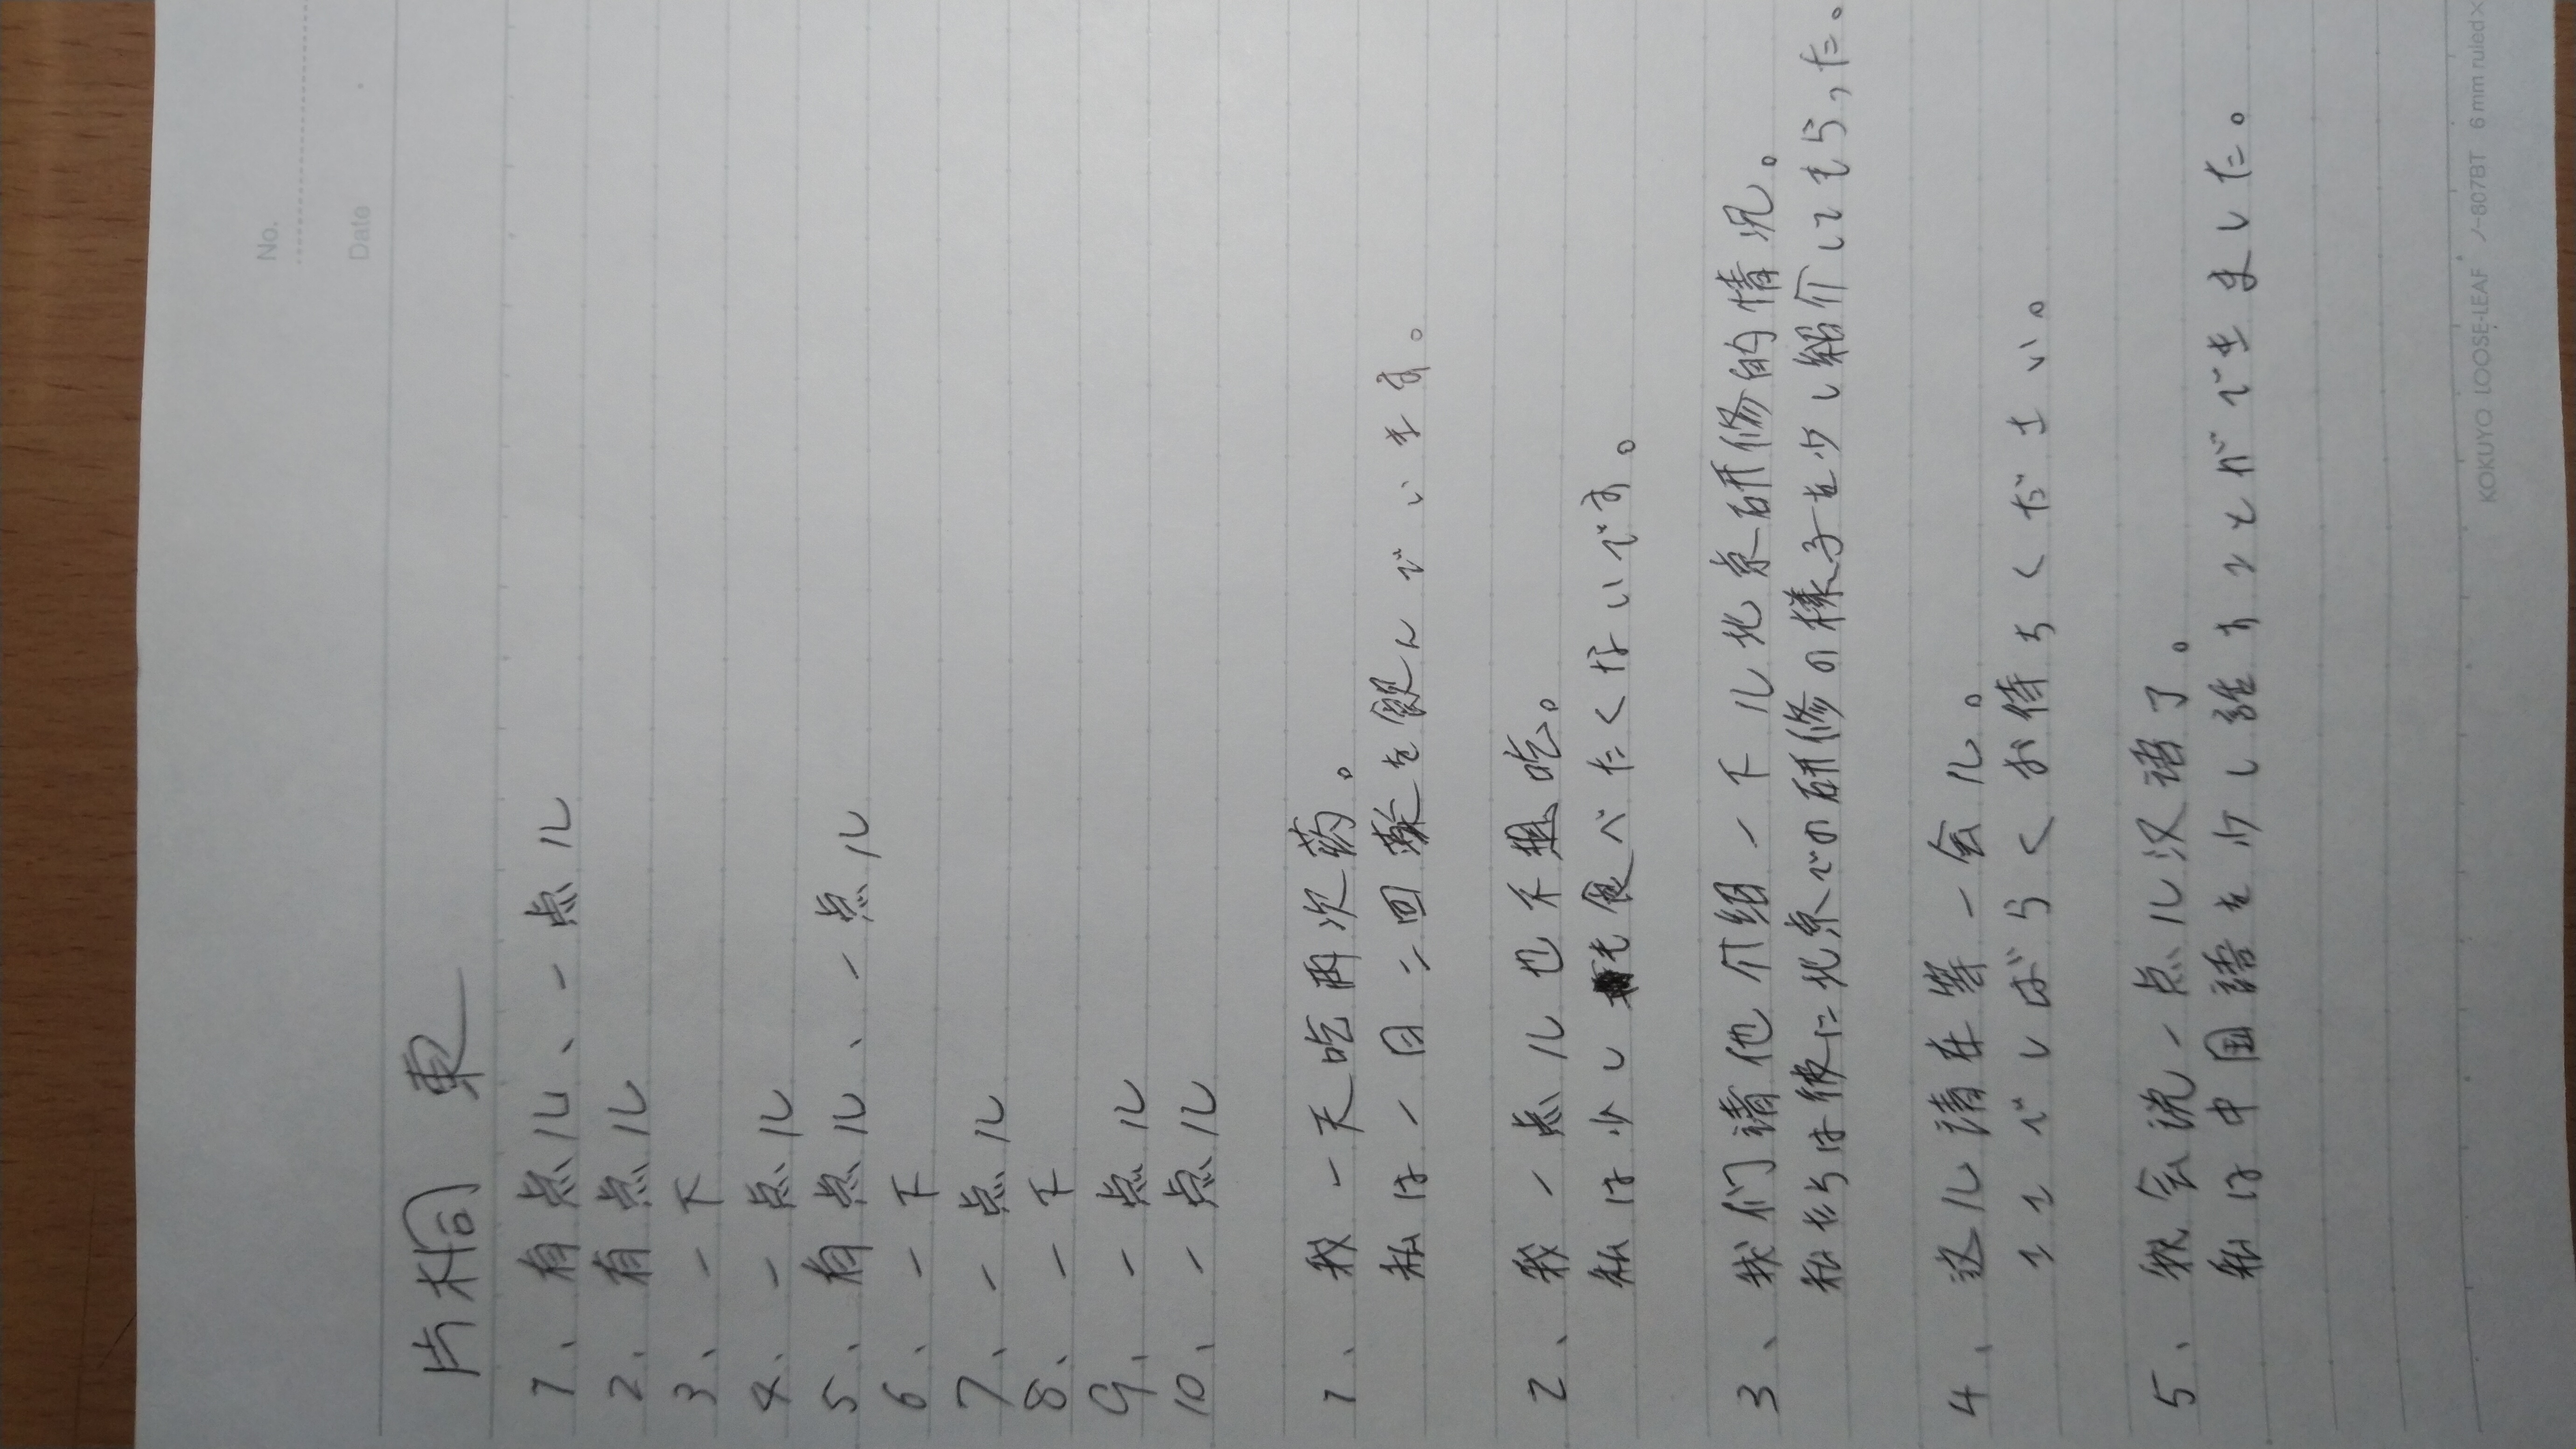 No.
Date
片桐 東
1、有点儿、一点儿
2、有点儿
3、一下
4、一点儿
5、有点儿、一点儿
6、一下
7、一点儿
8、一下
9、一点儿
10、一点儿
1、我一天吃两次药。
私は一日二回薬を飲んでいます。
2、我一点儿也不想吃。
私は少しも食べたくないです。
3、我们请他介绍一下儿北京研修的情况。
私たちは彼に北京での研修の様子を少し紹介してもらった。
4、这儿请在等一会儿。
ここでしばらくお待ちください。
5、我会说一点儿汉语了。
私は中国語を少し話すことができました。
KOKUYO LOOSE-LEAF ノ-807BT 6 mm ruled×